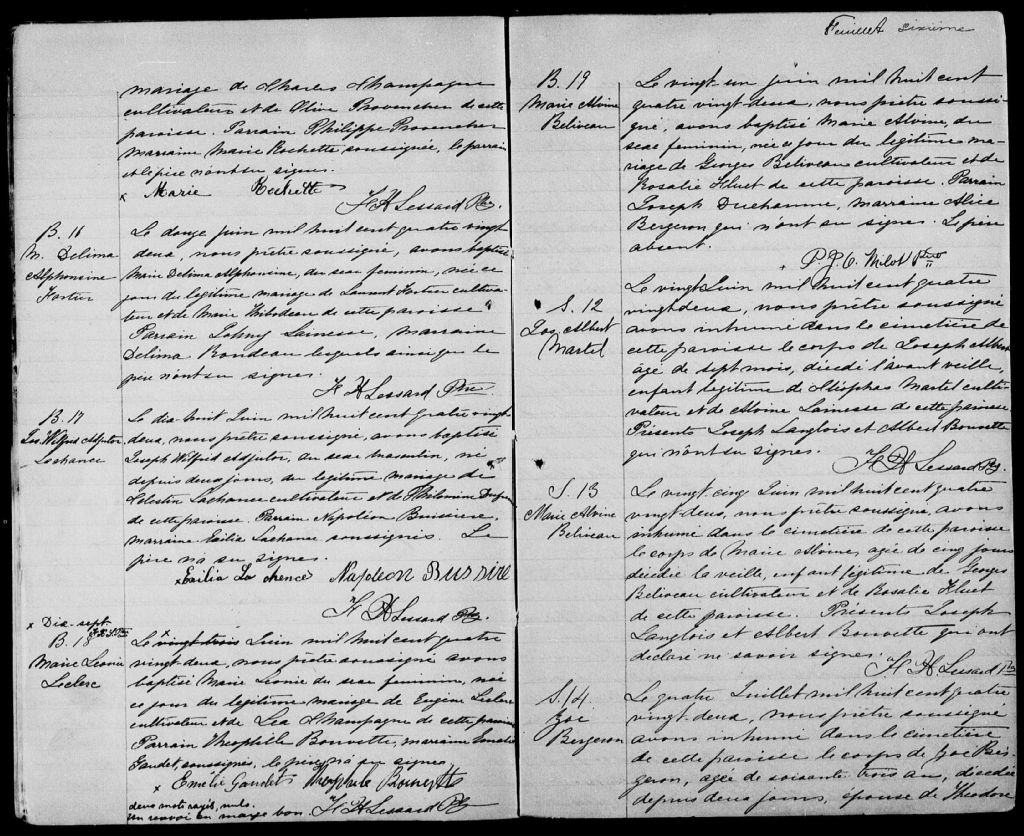 mariage de Charles Champagne
cultivateur et de Olive Provencher de cette
paroisse. Parrain Philippe Provencher
marraine Marie Rochette soussignée, le parrain
et le père n'ont su signer.
x Marie Rochette
F H Lessard Ptre.
B. 16
M. Delima
Alphonsine
Fortier
Le douze juin mil huit cent quatre vingt
deux, nous prêtre soussigné, avons baptisé
Marie Delima Alphonsine, du sexe féminin, née ce
jour du légitime mariage de Laurent Fortier cultiva-
teur et de Marie Thibodeau de cette paroisse
Parrain Johny Lainesse, marraine
Delima Rondeau lesquels ainsi que le
père n'ont su signer.
F H Lessard Ptre
B. 17
Jos. Wilfrid Adjutor
Lachance
Le dix-huit Juin mil huit cent quatre vingt
deux, nous prêtre soussigné, avons baptisé
Joseph Wilfrid Adjutor, du sexe masculin, né
depuis deux jours, du légitime mariage de
Célestin Lachance cultivateur et de Philomène
de cette paroisse. Parrain Napoléon Bussiere,
marraine Exilie Lachance soussignés. Le
père n'a su signer.
x Exilia La chence Napoleon Bussire
F H Lessard Ptre.
x Dix-sept
B. 18
Marie Leonie
Leclerc
Le vingt trois Juin mil huit cent quatre
vingt deux, nous prêtre soussigné avons
baptisé Marie Leonie du sexe féminin, née
ce jour du légitime mariage de Eugène Leclerc
cultivateur et de Lea Champagne de cette paroisse
Parrain Theophile Bouvette, marraine
Gaudet soussignés, le père n'a pu signer
x Emélie Gaudet Theophile Bouvette
deux mots rayés, nuls.
un renvoi en marge bon. F H Lessard Ptre
Feuillet sixième
B. 19
Marie Alvine
Beliveau
Le vingt un juin mil huit cent
quatre vingt-deux, nous prêtre soussi-
gné, avons baptisé Marie Alvine, du
sexe féminin, née ce jour du légitime ma-
riage de Georges Beliveau cultivateur et de
Rosalie Huet de cette paroisse. Parrain
Joseph Duchanne, marraine Alice
Bergeron qui n'ont su signer. Le père
absent.
P. J. O. Milot Ptre
S. 12
Jos. Albert
Martel
Le vingt Juin mil huit cent quatre
vingt-deux, nous prêtre soussigné
avons inhumé dans le cimetière de
cette paroisse le corps de Joseph Albert
âgé de sept mois, décédé l'avant veille,
enfant légitime de Cléophas Martel culti-
vateur et de Alvine Lainesse de cette paroisse.
Présents Joseph Langlois et Albert Bouvette
qui n'ont su signer.
F H Lessard Ptre
S. 13
Marie Alvine
Beliveau
Le vingt-cinq Juin mil huit cent quatre
vingt-deux, nous prêtre soussigné, avons
inhumé dans le cimetière de cette paroisse
le corps de Marie Alvine, âgée de cinq jours
décédée la veille, enfant légitime de Georges
Beliveau cultivateur et de Rosalie Huet
de cette paroisse. Présents Joseph
Langlois et Albert Bouvette qui ont
déclaré ne savoir signer.
F H Lessard Ptre
S. 14.
Zoe
Bergeron
Le quatre Juillet mil huit cent quatre
vingt-deux, nous prêtre soussigné
avons inhumé dans le cimetière
de cette paroisse le corps de Zoe Ber-
geron, âgée de soixante trois an, décédée
depuis deux jours, épouse de Théodore